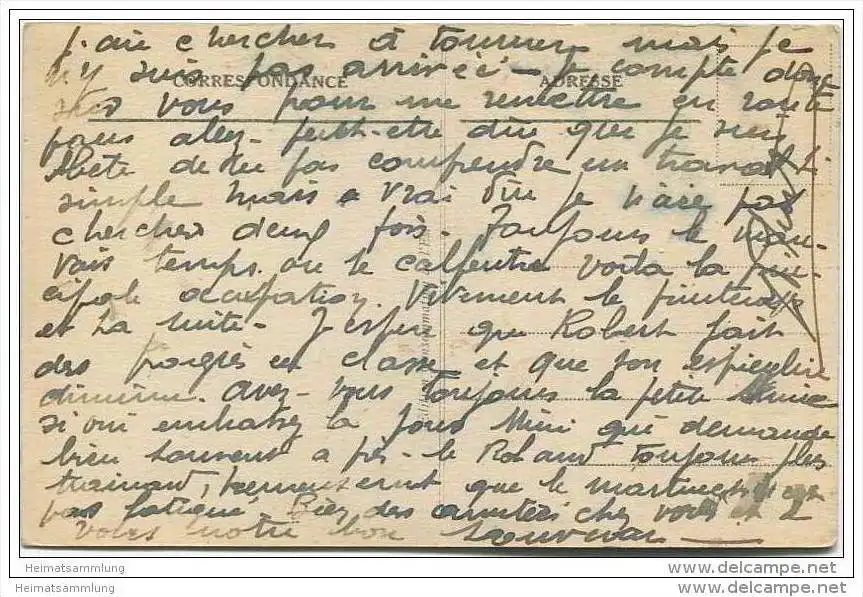 j'ai chercher à tourner mais je
n'y suis pas arrivée - Je compte donc
CORRESPONDANCE ADRESSE
sur vous pour me remettre en route
vous allez peut-être dire que je suis
bete de ne pas comprendre un travail si
simple mais a vrai dire je n'aie pas
chercher deux fois - Toujours le mau-
vais temps. ou le calfeutre voila la prin-
cipale occupation. Vivement le printemps
et la suite - J'espere que Robert fait
des progrès en classe et que son espieglerie
diminue. avez-vous toujours la petite Mimie
si oui embrassez la pour Mimi qui demande
bien souvent a près - le Roland toujours plus
trainard, heureusement que le martinet n'est
pas fatigué. Bien des amitiés chez vous et a
vous notre bon souvenir
www.delcampe.net
Heimatsammlung